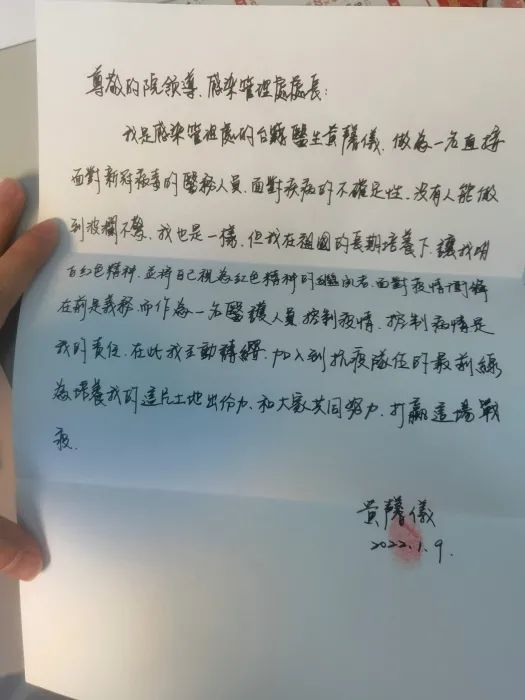 尊敬的院領導、感染管理處處長：
我是感染管理處的台籍醫生黃馨儀，做為一名直接
面對新冠病毒的醫務人員，面對疾病的不確定性，沒有人能做
到波瀾不驚，我也是一樣，但我在祖國的長期培養下，讓我明
白紅色精神，並將自己視為紅色精神的繼承者，面對疫情衝鋒
在前是義務，而作為一名醫護人員控制疫情、控制病情是
我的責任，在此我主動請纓，加入到抗疫隊伍的最前線
為培養我的這片土地出份力，和大家共同努力，打贏這場戰
疫。
黃馨儀
2022.1.9.